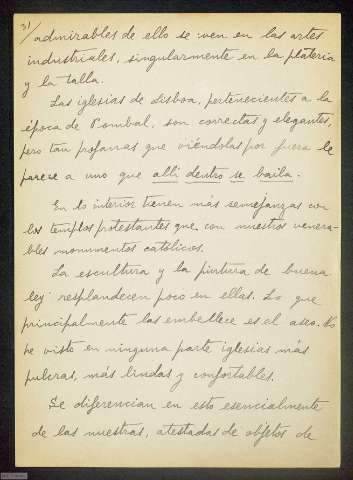 31/
admirables de ello se ven en las artes
industriales, singularmente en la platería
y la talla.
Las iglesias de Lisboa, pertenecientes a la
época de Pombal, son correctas y elegantes,
pero tan profanas que viéndolas por fuera le
parece a uno que allí dentro se baila.
En lo interior tienen más semejanzas con
los templos protestantes que con nuestros venera-
bles monumentos católicos.
La escultura y la pintura de buena
ley resplandecen poco en ellas. Lo que
principalmente las embellece es el aseo. No
he visto en ninguna parte iglesias más
pulcras, más lindas y confortables.
Se diferencian en esto esencialmente
de las nuestras, atestadas de objetos de